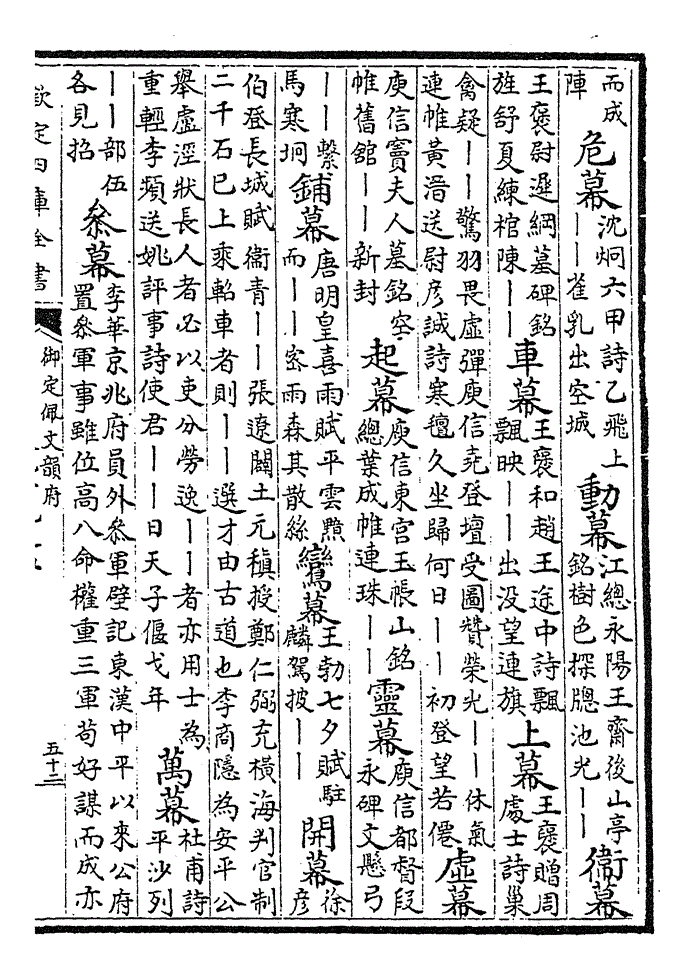 而成陣危幕沈炯六甲詩乙飛上——雀乳出空城動幕江總永陽王齋後山亭銘樹色探牕池光——衛幕
王褒尉遲綱墓碑銘旌舒夏練棺陳——車幕王褒和趙王途中詩飄飄映——出没望連旗上幕王褒贈周處士詩巢
禽疑——驚羽畏虛彈庾信堯登壇受圖贊榮光——休氣連帷黃溍送尉彥誠詩寒氊久坐歸何日——初登望若僊虛幕
庾信竇夫人墓銘空帷舊館——新封起幕庾信東宮玉帳山銘總葉成帷連珠——靈幕庾信都督段永碑文懸弓
——繫馬寒坰鋪幕唐明皇喜雨賦平雲黕而——密雨森其散絲鸞幕王勃七夕賦駐麟駕披——開幕徐彥
伯登長城賦衞青——張遼闢土元稹授鄭仁弼充橫海判官制二千石已上乘軺車者則——選才由古道也李商隱為安平公
舉虛涇狀長人者必以吏分勞逸——者亦用士為重輕李頻送姚評事詩使君——日天子偃戈年萬幕杜甫詩平沙列
——部伍各見招叅幕李華京兆府員外叅軍壁記東漢中平以來公府置叅軍事雖位高八命權重三軍苟好謀而成亦
欽定四庫全書
御定佩文韻府
五十二